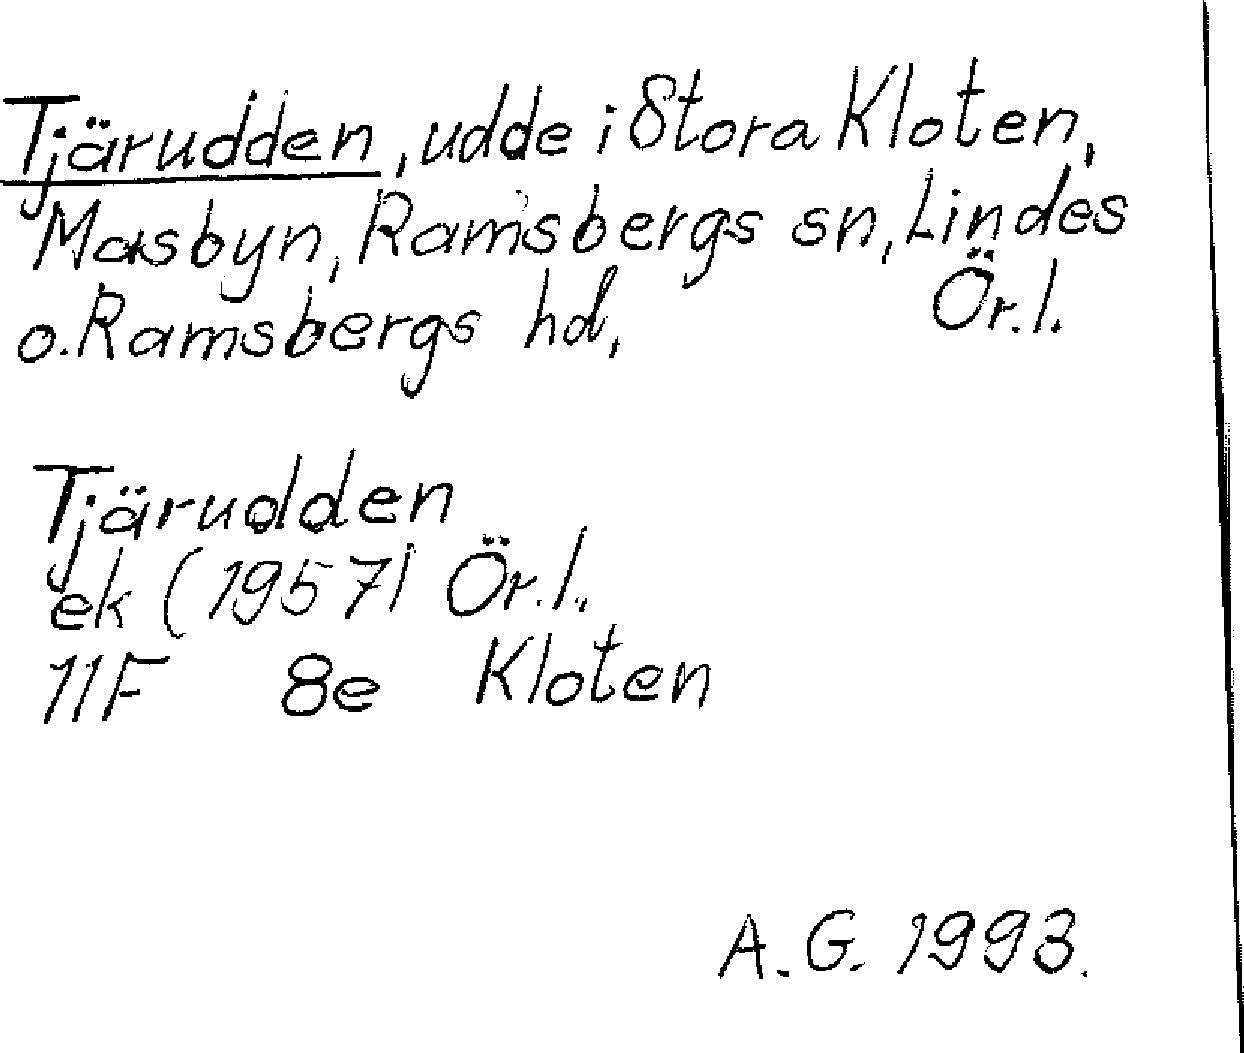 Tjärudden, udde i Stora Kloten,
Masbyn, Ramsbergs sn, Lindes
o. Ramsbergs hd, Ör. l.
Tjärudden
ek (1957) Ör. l.
11F 8e Kloten
A. G. 1993.